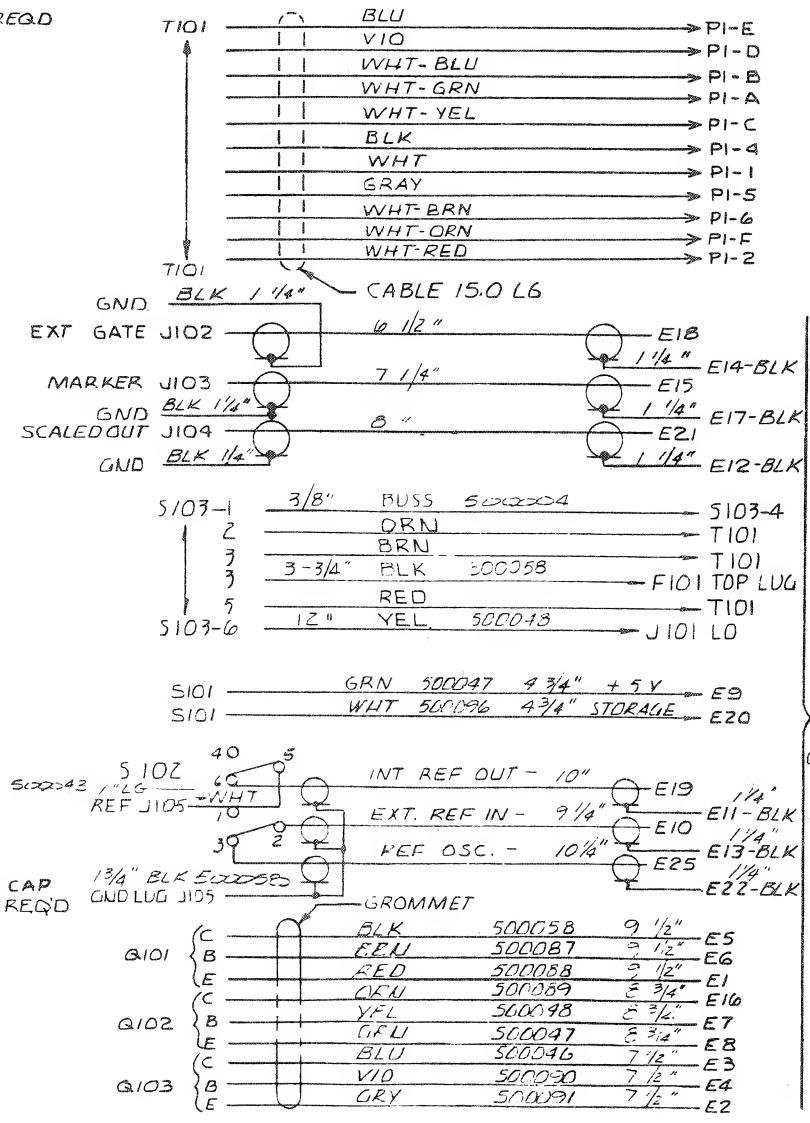 REQD
T101 BLU P1-E
VIO P1-D
WHT-BLU P1-B
WHT-GRN P1-A
WHT-YEL P1-C
BLK P1-4
WHT P1-1
GRAY P1-5
WHT-BRN P1-6
WHT-ORN P1-F
WHT-RED P1-2
T101
CABLE 15.0 LG
GND BLK 1 1/4"
EXT GATE J102 6 1/2" E18
1 1/4" E14-BLK
MARKER J103 7 1/4" E15
GND BLK 1 1/4" 1 1/4" E17-BLK
SCALED OUT J104 8" E21
GND BLK 1/4" 1 1/4" E12-BLK
S103-1 3/8" BUSS 500004 S103-4
2 ORN T101
3 BRN T101
3 3-3/4" BLK 500058 F101 TOP LUG
5 RED T101
S103-6 12" YEL 500048 J101 LO
S101 GRN 500047 4 3/4" +5V E9
S101 WHT 500096 4 3/4" STORAGE E20
4 5
S102 6 INT REF OUT - 10" E19
1" LG WHT 1 1/4"
REF J105 E11-BLK
1 EXT. REF IN - 9 1/4" E10 1 1/4"
3 2 E13-BLK
REF OSC. - 10 1/4" E25 1 1/4"
CAP 1 3/4" BLK 500058 E22-BLK
REQ'D GND LUG J105
GROMMET
Q101 C BLK 500058 9 1/2" E5
B 500087 9 1/2" E6
E RED 500088 9 1/2" E1
Q102 C 500089 8 3/4" E16
B YEL 500048 8 3/4" E7
E GRN 500047 8 3/4" E8
Q103 C BLU 500046 7 1/2" E3
B VIO 500090 7 1/2" E4
E GRY 500091 7 1/2" E2